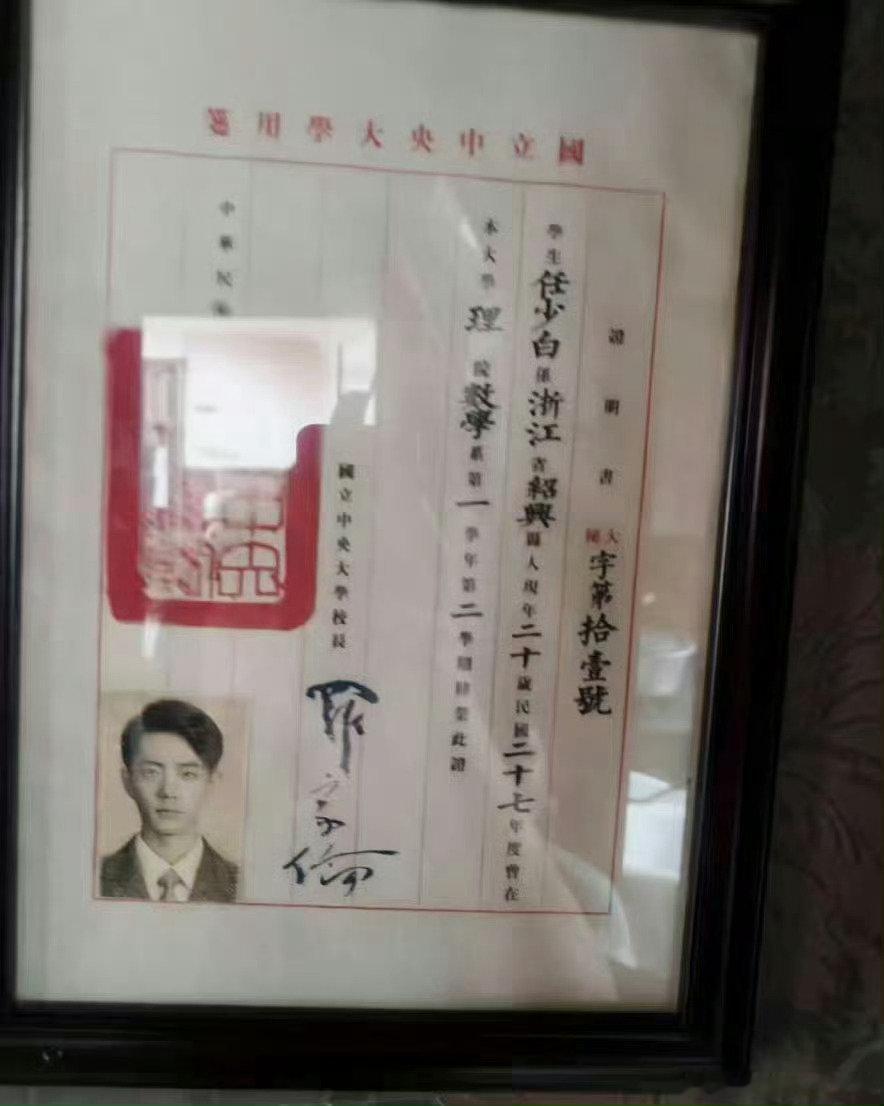 國立中央大學用箋
證明書 大 字第拾壹號
學生任少白係浙江省紹興縣人現年二十歲民國二十七年度曾在
本大學理院數學系第一學年第二學期肄業此證
國立中央大學校長 羅家倫
中華民